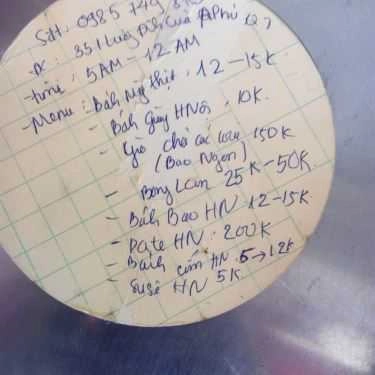 Sđt: 0985 749
- ĐC: 351 Lưu Phú Q7
- time: 5AM - 12AM
- Menu: Bánh Mỳ thịt: 12-15K
- Bánh Giầy HN: 10K.
- Giò chả các loại 150K
(Bao Ngon)
- Bông Lan 25K-50K
- Bánh Bao HN 12-15K
- Pate HN: 200K
- Bánh cốm HN 5→12K
- Su sê HN 5K